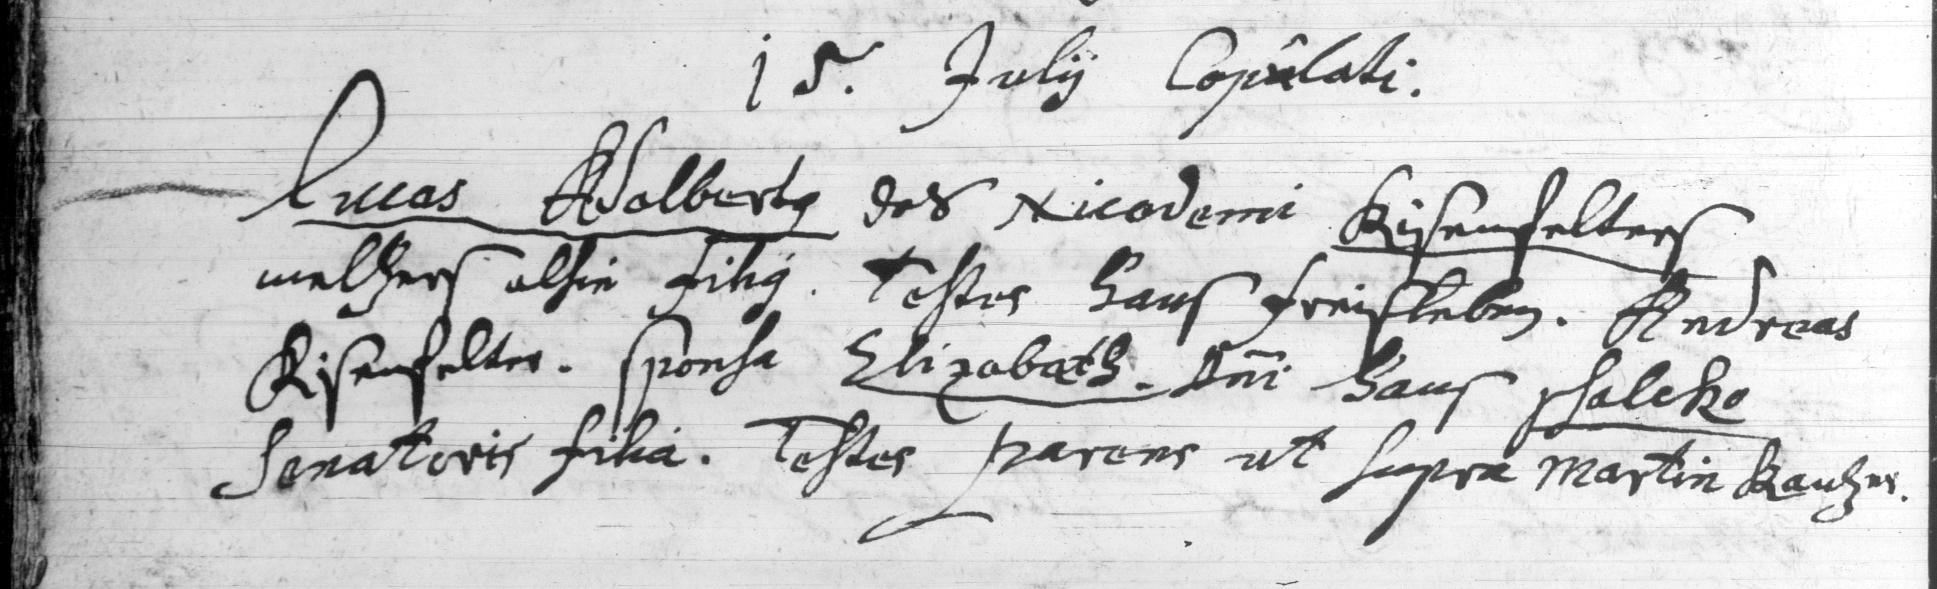 15. Julij Copûlati.
Lucas Adalbertg des Nicodemi Kisenfelters
melhzers alhie filig. Testes Hans freisleben. Andreas
Kisenfelter. sponsa Elizabeth. Dni Hans schalcko
senatoris filia. Testes parens ut supra Martin Kauhzer.